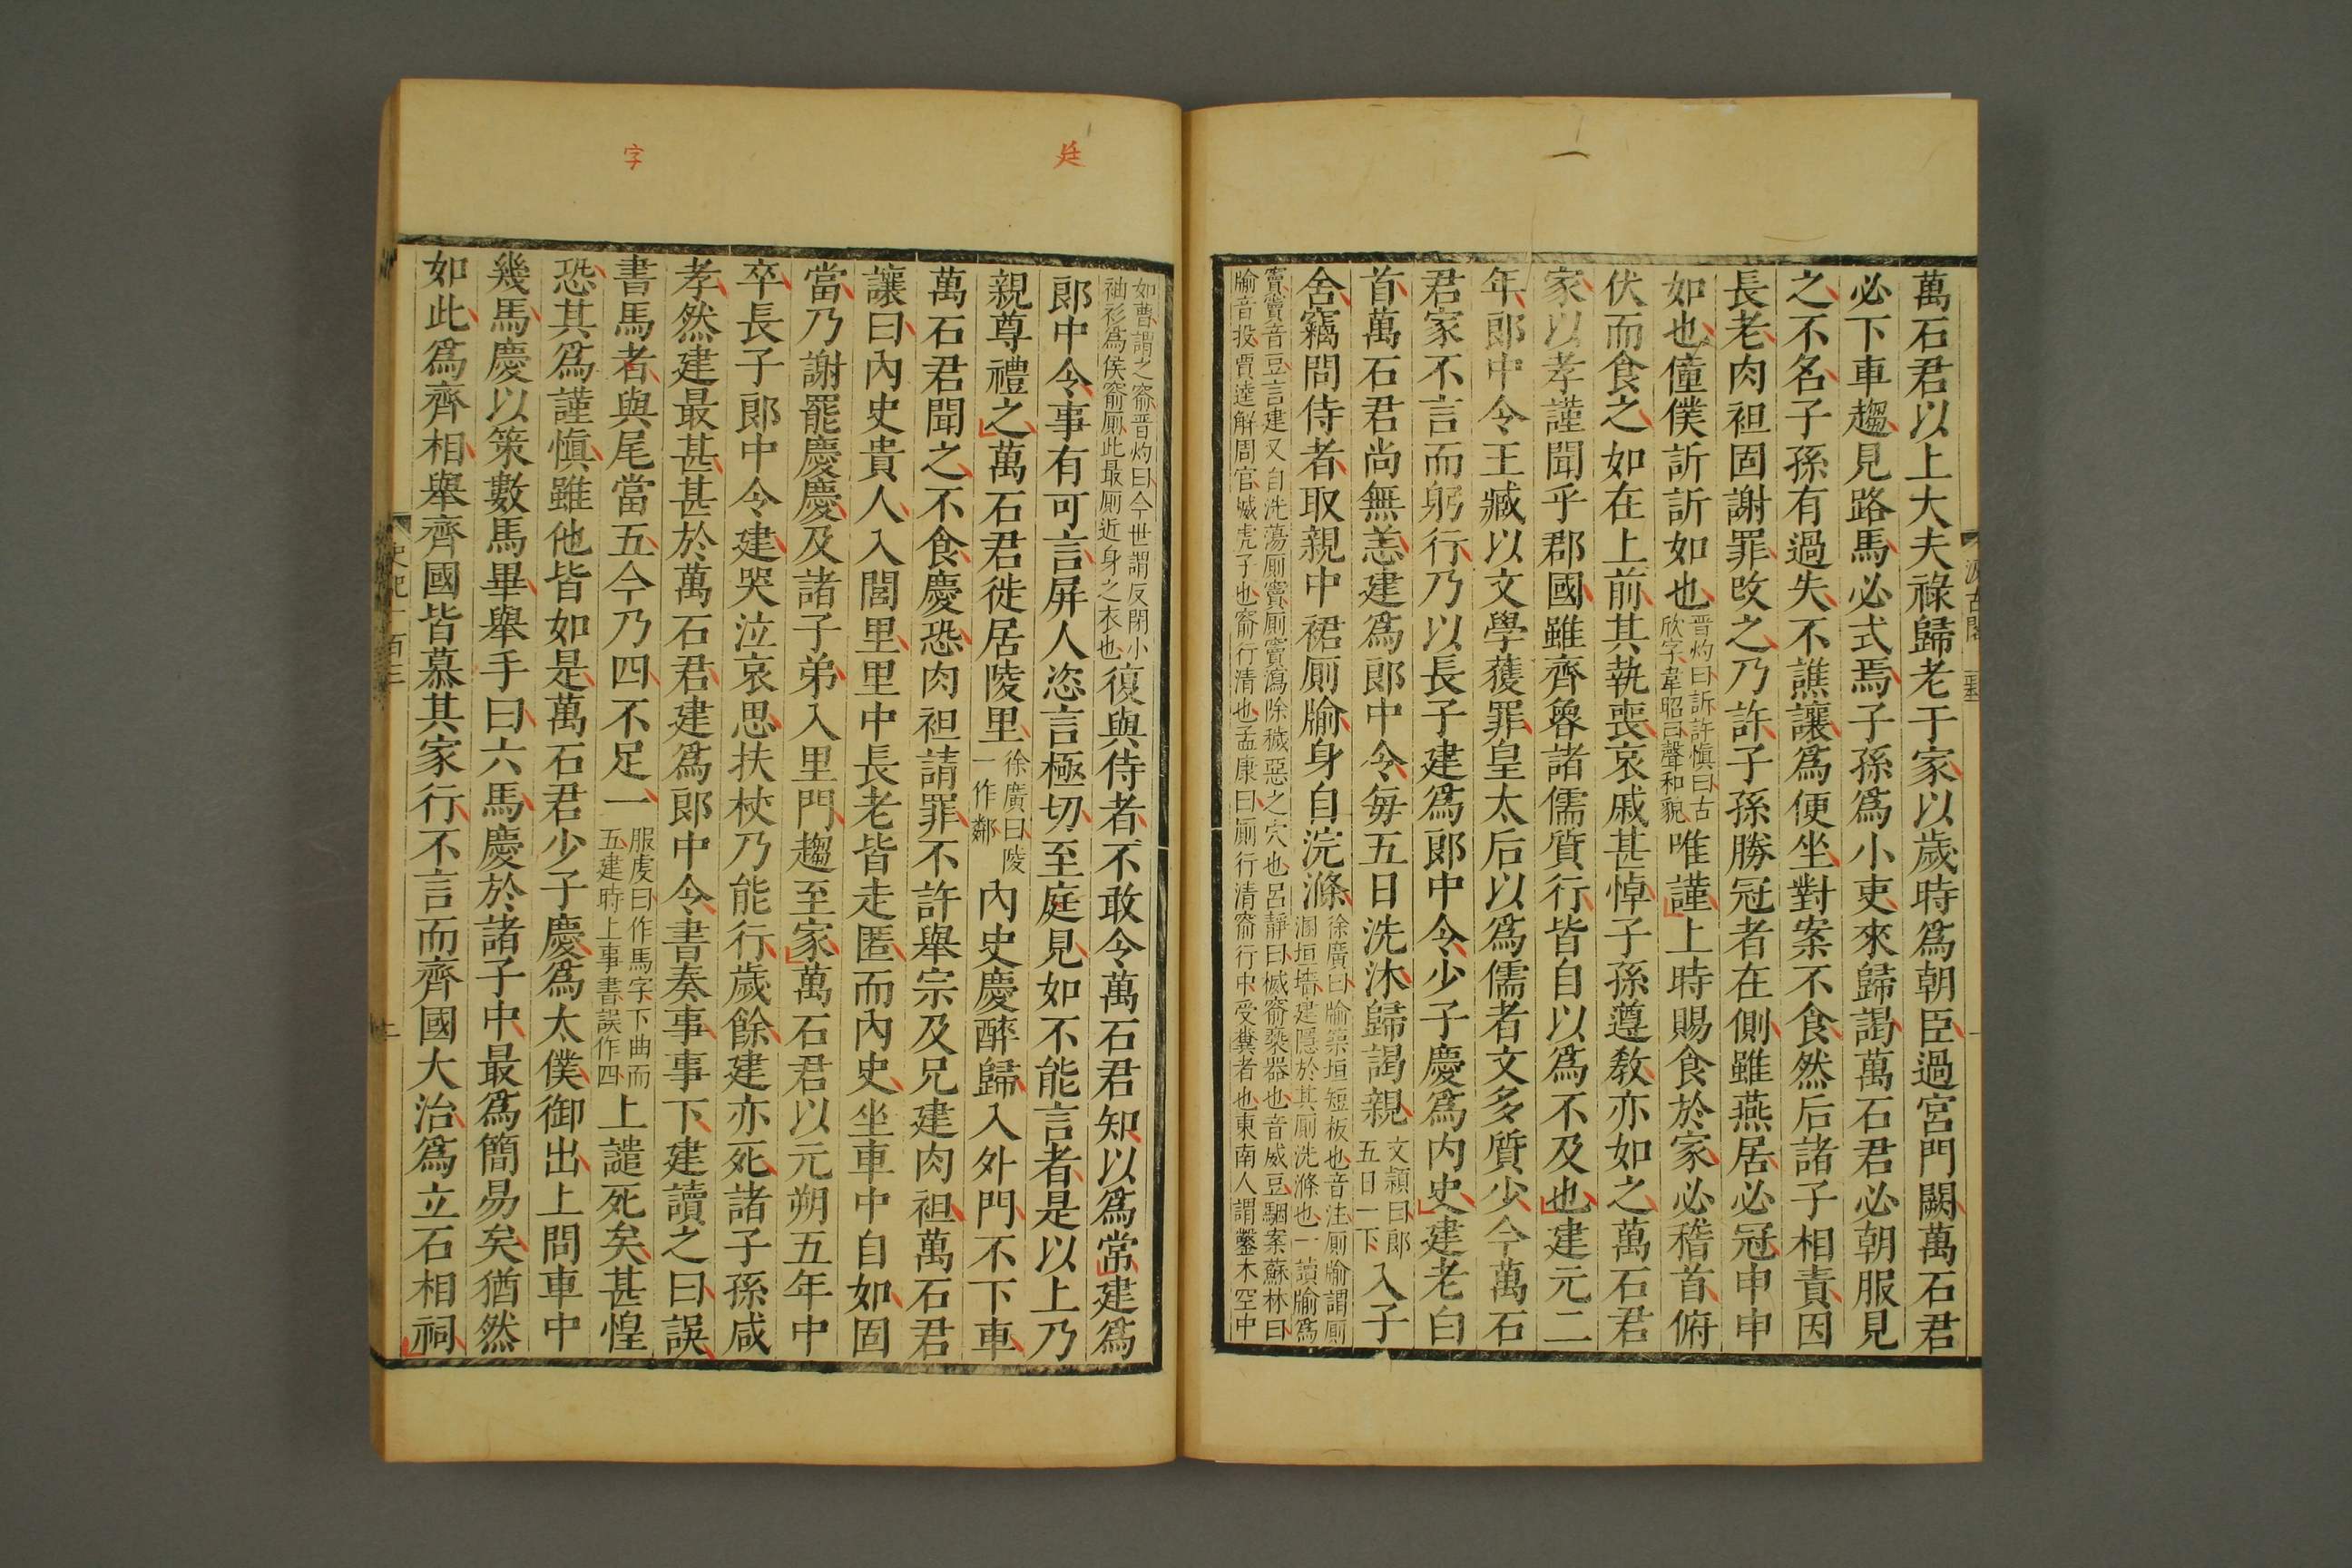 萬石君以上大夫祿歸老于家以歲時爲朝臣過宮門闕萬石君
必下車趨見路馬必式焉子孫爲小吏來歸謁萬石君必朝服見
之不名子孫有過失不譙讓爲便坐對案不食然后諸子相責因
長老肉袒固謝罪改之乃許子孫勝冠者在側雖燕居必冠申申
如也僮僕訢訢如也晋灼曰訢許慎曰古欣字韋昭曰聲和貌唯謹上時賜食於家必稽首俯
伏而食之如在上前其執喪哀戚甚悼子孫遵教亦如之萬石君
家以孝謹聞乎郡國雖齊魯諸儒質行皆自以爲不及也建元二
年郎中令王臧以文學獲罪皇太后以爲儒者文多質少今萬石
君家不言而躬行乃以長子建爲郎中令少子慶爲內史建老白
首萬石君尚無恙建爲郎中令每五日洗沐歸謁親文穎曰郎五日一下入子
舍竊問侍者取親中裙厠牏身自浣滌徐廣曰牏築垣短板也音住厠牏謂厠溷垣墻建隱於其厠洗滌也一讀牏爲
竇竇音豆言建又自洗蕩厠竇厠竇瀉除穢惡之穴也呂靜曰楲窬褻器也音威豆駰案蘇林曰
牏音投賈逵解周官楲虎子也窬行清也孟康曰厠行清窬行中受糞者也東南人謂鑿木空中
如曹謂之窬晋灼曰今世謂反閉小
袖衫爲侯窬厠此最厠近身之衣也復與侍者不敢令萬石君知以爲常建爲
郎中令事有可言屏人恣言極切至庭見如不能言者是以上乃
親尊禮之萬石君徙居陵里徐廣曰陵一作鄰內史慶醉歸入外門不下車
萬石君聞之不食慶恐肉袒請罪不許舉宗及兄建肉袒萬石君
讓曰內史貴人入閭里里中長老皆走匿而內史坐車中自如固
當乃謝罷慶慶及諸子弟入里門趨至家萬石君以元朔五年中
卒長子郎中令建哭泣哀思扶杖乃能行歲餘建亦死諸子孫咸
孝然建最甚甚於萬石君建爲郎中令書奏事事下建讀之曰誤
書馬者與尾當五今乃四不足一服虔曰作馬字下曲而五建時上事書誤作四上譴死矣甚惶
恐其爲謹慎雖他皆如是萬石君少子慶爲太僕御出上問車中
幾馬慶以策數馬畢舉手曰六馬慶於諸子中最爲簡易矣猶然
如此爲齊相舉齊國皆慕其家行不言而齊國大治爲立石相祠
廷
字
史記一百三
二